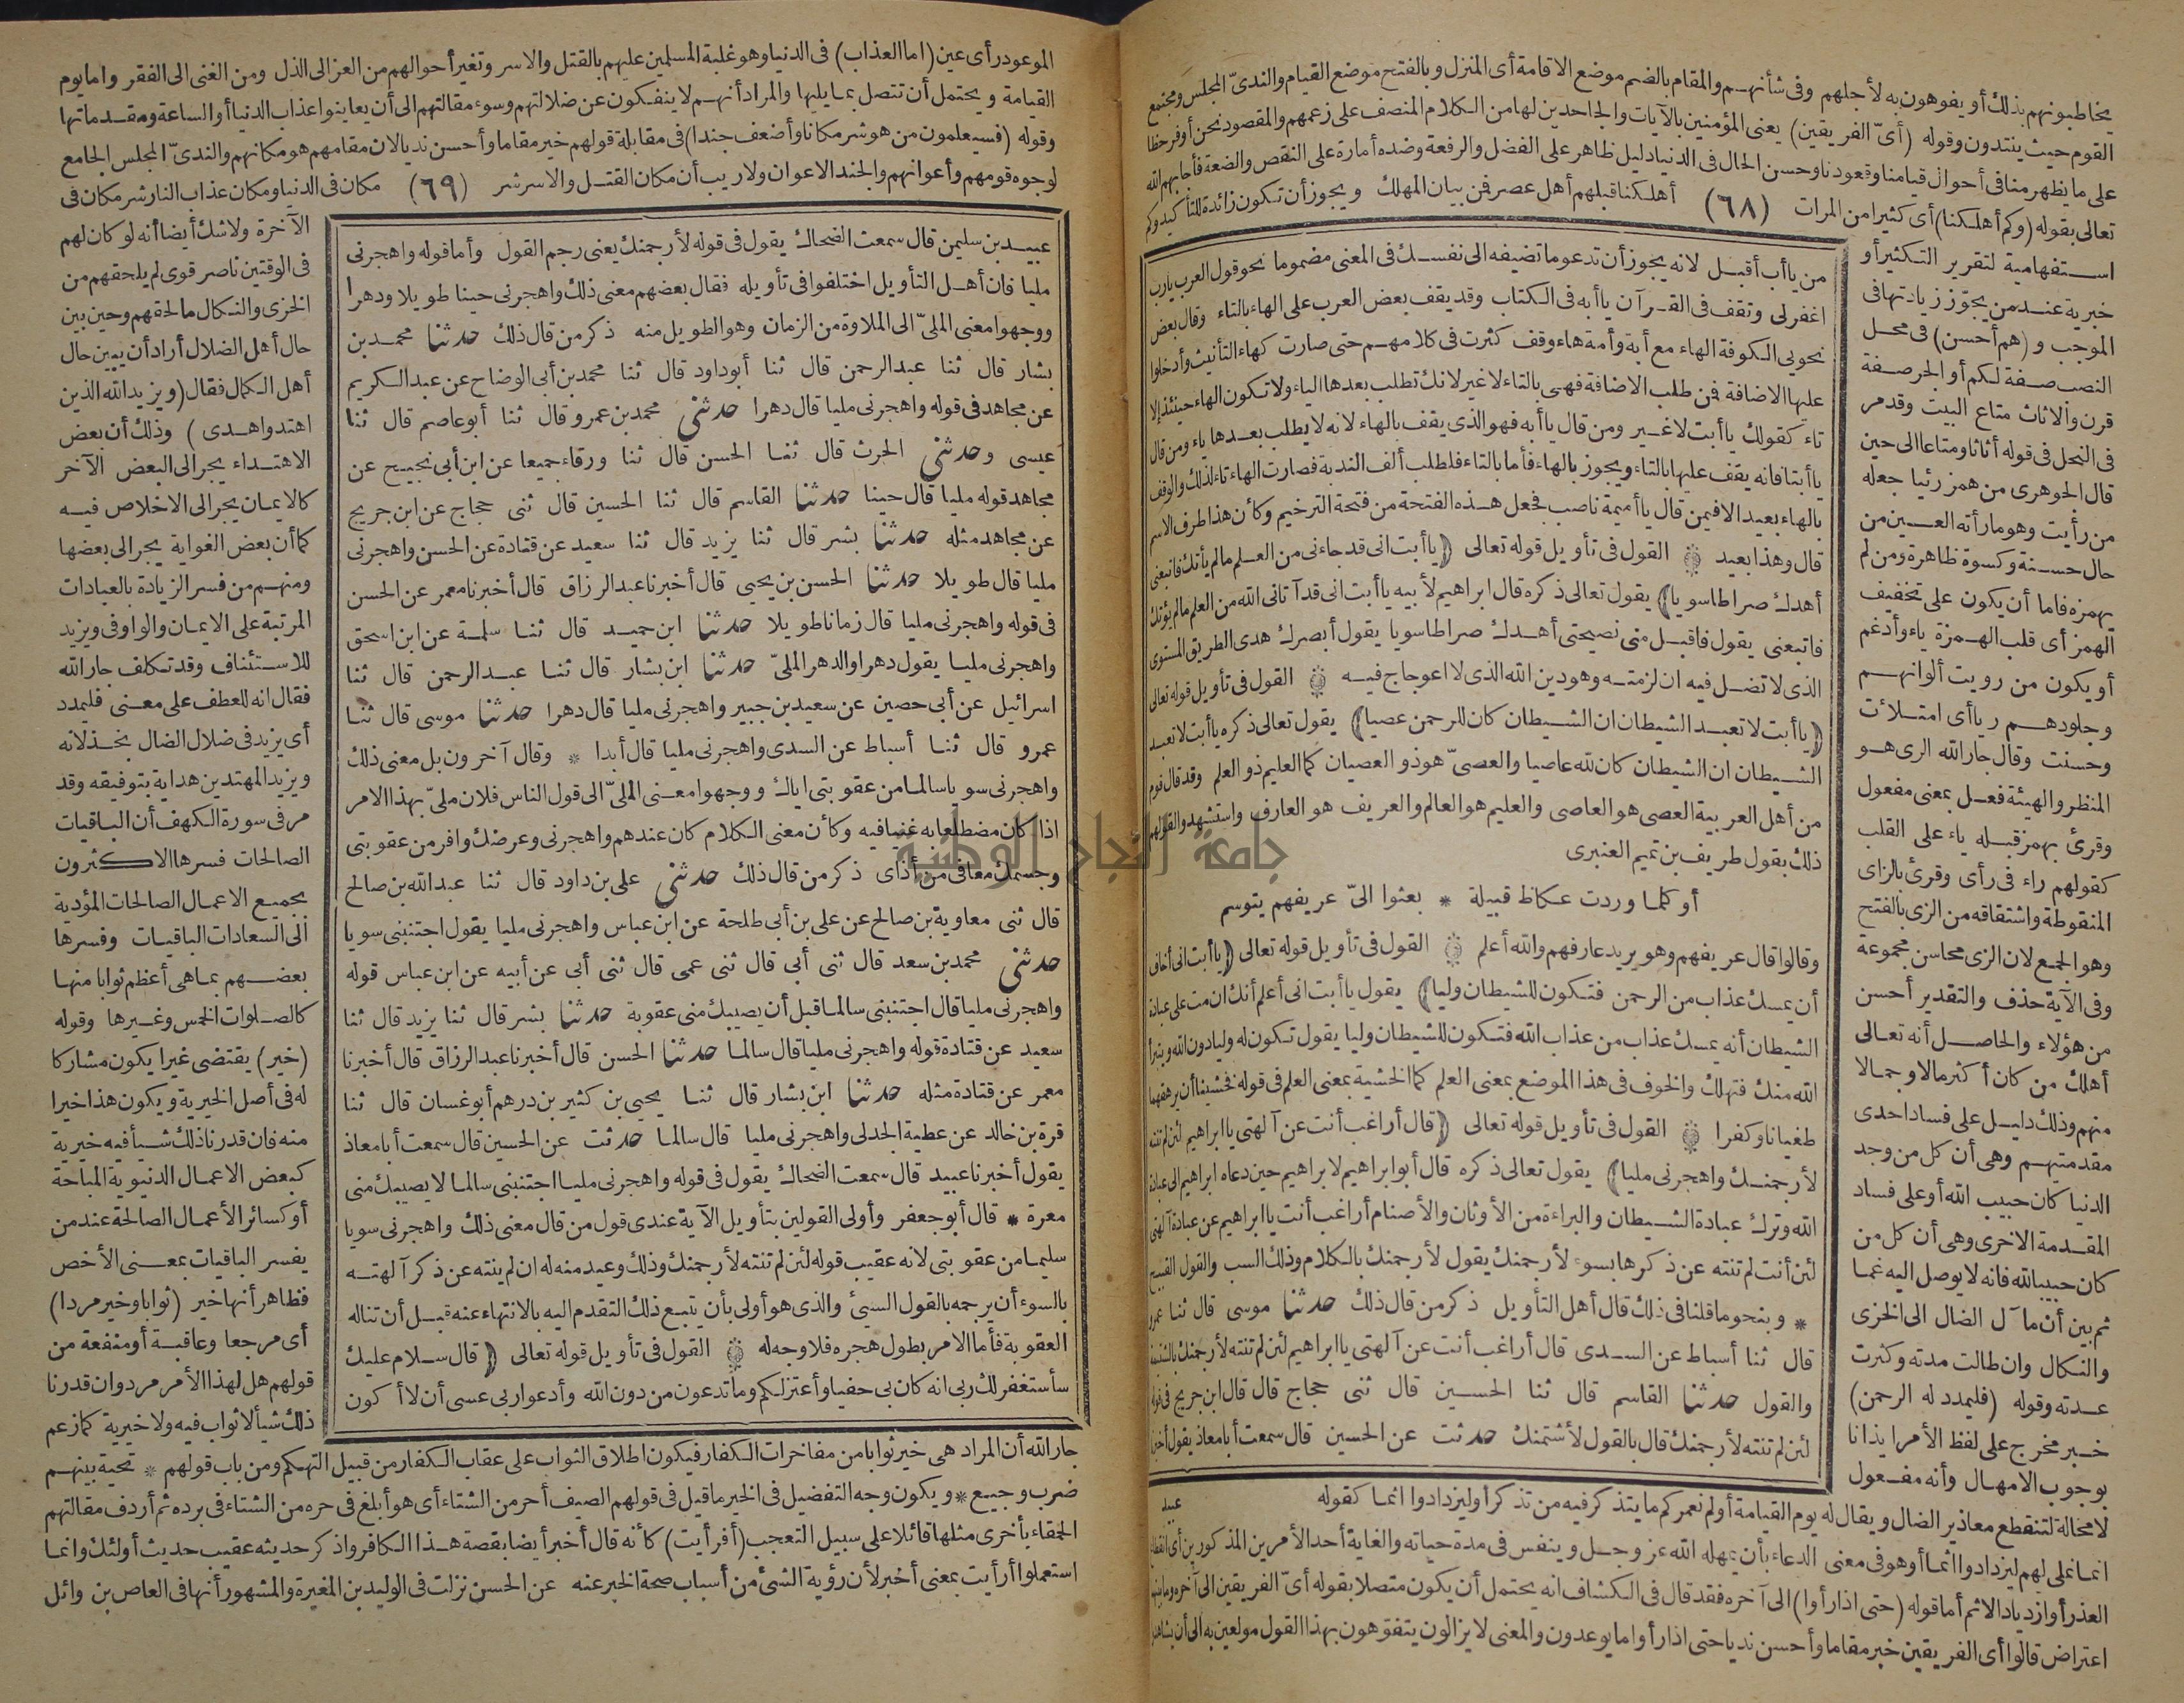 يخاطبونهم بذلك أو يفوهون به لأجلهم وفى شأنهم والمقام بالضم موضع الاقامة أى المنزل وبالفتح موضع القيام والندىّ المجلس ومجتمع
القوم حيث ينتدون وقوله (أىّ الفريقين) يعنى المؤمنين بالآيات والجاحدين لها من الكلام المنصف على زعمهم والمقصود نحن أوفر حظا
على ما يظهر منا فى أحوال قيامنا وقعودنا وحسن الحال فى الدنيا دليل ظاهر على الفضل والرفعة وضده أمارة على النقص والضعة فأجابهم الله
تعالى بقوله (وكم أهلكنا) أى كثيرا من المرات (٦٨) أهلكنا قبلهم أهل عصر فن بيان المهلك ويجوز أن تكون زائدة للتأكيد وكم
استفهامية لتقرير التكثير أو
خبرية عند من يجوّز زيادتها فى
الموجب و (هم أحسن) فى محل
النصب صفة لكم أو الجر صفة
قرن والاثاث متاع البيت وقد مر
فى النحل فى قوله أثاثا ومتاعا الى حين
قال الجوهرى من همز رئيا جعله
من رأيت وهو ما رأته العين من
حال حسنة وكسوة ظاهرة ومن لم
يهمزه فاما أن يكون على تخفيف
الهمز أى قلب الهمزة ياء وأدغم
أو يكون من رويت ألوانهم
وجلودهم ريا أى امتلأت
وحسنت وقال جار الله الرى هو
المنظر والهيئة فعل بمعنى مفعول
وقرئ بهمز قبله ياء على القلب
كقولهم راء فى رأى وقرئ بالزاى
المنقوطة واشتقاقه من الزى بالفتح
وهو الجمع لان الزى محاسن مجموعة
وفى الآية حذف والتقدير أحسن
من هؤلاء والحاصل أنه تعالى
أهلك من كان أكثر مالا وجمالا
منهم وذلك دليل على فساد احدى
مقدمتيهم وهى أن كل من وجد
الدنيا كان حبيب الله أو على فساد
المقدمة الاخرى وهى أن كل من
كان حبيبا لله فانه لا يوصل اليه غما
ثم بين أن مآل الضال الى الخزى
والنكال وان طالت مدته وكثرت
عدته وقوله (فليمدد له الرحمن)
خبر مخرج على لفظ الأمر ايذانا
بوجوب الامهال وأنه مفعول
من يا أب أقبل لانه يجوز أن تدعو ما تضيفه الى نفسك فى المعنى مضموما نحو قول العرب يارب
اغفرلى وتقف فى القرآن يا أبه فى الكتاب وقد يقف بعض العرب على الهاء بالتاء وقال بعض
نحويى الكوفة الهاء مع أبه وأمة هاء وقف كثرت فى كلامهم حتى صارت كهاء التأنيث وأدخلوا
عليها الاضافة فمن طلب الاضافة فهى بالتاء لا غير لانك تطلب بعدها الياء ولا تكون الهاء حينئذ إلا
تاء كقولك يا أبت لا غير ومن قال يا أبه فهو الذى يقف بالهاء لانه لا يطلب بعدها ياء ومن قال
يا أبتا فانه يقف عليها بالتاء ويجوز بالهاء فأما بالتاء فلطلب ألف الندبة فصارت الهاء تاء لذلك والوقف
بالهاء بعيد الا فيمن قال يا أميمة ناصب فجعل هذه الفتحة من فتحة الترخيم وكأن هذا طرف الاسم
قال وهذا بعيد القول فى تأويل قوله تعالى (يا أبت انى قد جاءنى من العلم ما لم يأتك فاتبعنى
أهدك صراطا سويا) يقول تعالى ذكره قال ابراهيم لأبيه يا أبت انى قد آتانى الله من العلم ما لم يؤتك
فاتبعنى يقول فاقبل منى نصيحتى أهدك صراطا سويا يقول أبصرك هدى الطريق المستوى
الذى لا تضل فيه ان لزمته وهو دين الله الذى لا اعوجاج فيه القول فى تأويل قوله تعالى
(يا أبت لا تعبد الشيطان ان الشيطان كان للرحمن عصيا) يقول تعالى ذكره يا أبت لا تعبد
الشيطان ان الشيطان كان لله عاصيا والعصىّ هو ذو العصيان كما العليم ذو العلم وقد قال قوم
من أهل العربية العصى هو العاصى والعليم هو العالم والعريف هو العارف واستشهدوا لقولهم
ذلك بقول طريف بن تميم العنبرى
أو كلما وردت عكاظ قبيلة * بعثوا الىّ عريفهم يتوسم
وقالوا قال عريفهم وهو يريد عارفهم والله أعلم القول فى تأويل قوله تعالى (يا أبت انى أخاف
أن يمسك عذاب من الرحمن فتكون للشيطان وليا) يقول يا أبت انى أعلم أنك ان مت على عبادة
الشيطان أنه يمسك عذاب من عذاب الله فتكون للشيطان وليا يقول تكون له وليا دون الله ويتبرأ
الله منك فتهلك والخوف فى هذا الموضع بمعنى العلم كما الخشية بمعنى العلم فى قوله فخشينا أن يرهقهما
طغيانا وكفرا القول فى تأويل قوله تعالى (قال أراغب أنت عن آلهتى يا ابراهيم لئن لم تنته
لأرجمنك واهجرنى مليا) يقول تعالى ذكره قال أبو ابراهيم لابراهيم حين دعاه ابراهيم الى عبادة
الله وترك عبادة الشيطان والبراءة من الأوثان والأصنام أراغب أنت يا ابراهيم عن عبادة آلهتى
لئن أنت لم تنته عن ذكرها بسوء لأرجمنك يقول لأرجمنك بالكلام وذلك السب والقول القبيح
* وبنحو ما قلنا فى ذلك قال أهل التأويل ذكر من قال ذلك حدثنا موسى قال ثنا عمرو
قال ثنا أسباط عن السدى قال أراغب أنت عن آلهتى يا ابراهيم لئن لم تنته لأرجمنك بالشتيمة
والقول حدثنا القاسم قال ثنا الحسين قال ثنى حجاج قال قال ابن جريج فى قوله
لئن لم تنته لأرجمنك قال بالقول لأشتمنك حدثت عن الحسين قال سمعت أبا معاذ يقول أخبرنا
عبيد
لا محالة لتنقطع معاذير الضال ويقال له يوم القيامة أو لم نعمركم ما يتذكر فيه من تذكر أو ليزدادوا انما كقوله
انما نملى لهم ليزدادوا اثما أو هو فى معنى الدعاء بأن يمهله الله عز وجل وينفس فى مدة حياته والغاية أحد الأمرين المذكورين أى انقطاع
العذر أو ازدياد الاثم أما قوله (حتى اذا رأوا) الى آخره فقد قال فى الكشاف انه يحتمل أن يكون متصلا بقوله أىّ الفريقين الى آخره وما بينهما
اعتراض قالوا أى الفريقين خير مقاما وأحسن نديا حتى اذا رأوا ما يوعدون والمعنى لا يزالون يتفوهون بهذا القول مولعين به الى أن يشاهدوا
الموعود رأى عين (اما العذاب) فى الدنيا وهو غلبة المسلمين عليهم بالقتل والاسر وتغير أحوالهم من العز الى الذل ومن الغنى الى الفقر واما يوم
القيامة ويحتمل أن تتصل بما يليها والمراد أنهم لا ينفكون عن ضلالتهم وسوء مقالتهم الى أن يعاينوا عذاب الدنيا أو الساعة ومقدماتها
وقوله (فسيعلمون من هو شر مكانا وأضعف جندا) فى مقابلة قولهم خير مقاما وأحسن نديا لان مقامهم هو مكانهم والندىّ المجلس الجامع
لوجوه قومهم وأعوانهم والجند الاعوان ولا ريب أن مكان القتل والاسر شر (٦٩) مكان فى الدنيا ومكان عذاب النار شر مكان فى
عبيد بن سليمن قال سمعت الضحاك يقول فى قوله لأرجمنك يعنى رجم القول وأما قوله واهجرنى
مليا فان أهل التأويل اختلفوا فى تأويله فقال بعضهم معنى ذلك واهجرنى حينا طويلا ودهرا
ووجهوا معنى الملىّ الى الملاوة من الزمان وهو الطويل منه ذكر من قال ذلك حدثنا محمد بن
بشار قال ثنا عبد الرحمن قال ثنا أبو داود قال ثنا محمد بن أبى الوضاح عن عبد الكريم
عن مجاهد فى قوله واهجرنى مليا قال دهرا حدثنى محمد بن عمرو قال ثنا أبو عاصم قال ثنا
عيسى وحدثنى الحرث قال ثنا الحسن قال ثنا ورقاء جميعا عن ابن أبى نجيح عن
مجاهد قوله مليا قال حينا حدثنا القاسم قال ثنا الحسين قال ثنى حجاج عن ابن جريج
عن مجاهد مثله حدثنا بشر قال ثنا يزيد قال ثنا سعيد عن قتادة عن الحسن واهجرنى
مليا قال طويلا حدثنا الحسن بن يحيى قال أخبرنا عبد الرزاق قال أخبرنا معمر عن الحسن
فى قوله واهجرنى مليا قال زمانا طويلا حدثنا ابن حميد قال ثنا سلمة عن ابن اسحق
واهجرنى مليا يقول دهرا والدهر الملىّ حدثنا ابن بشار قال ثنا عبد الرحمن قال ثنا
اسرائيل عن أبى حصين عن سعيد بن جبير واهجرنى مليا قال دهرا حدثنا موسى قال ثنا
عمرو قال ثنا أسباط عن السدى واهجرنى مليا قال أبدا * وقال آخرون بل معنى ذلك
واهجرنى سويا سالما من عقوبتى اياك ووجهوا معنى الملىّ الى قول الناس فلان ملىّ بهذا الامر
اذا كان مضطلعا به غنيا فيه وكأن معنى الكلام كان عندهم واهجرنى وعرضك وافر من عقوبتى
وجسمك معافى من أذاى ذكر من قال ذلك حدثنى على بن داود قال ثنا عبد الله بن صالح
قال ثنى معاوية بن صالح عن على بن أبى طلحة عن ابن عباس واهجرنى مليا يقول اجتنبنى سويا
حدثنى محمد بن سعد قال ثنى أبى قال ثنى عمى قال ثنى أبى عن أبيه عن ابن عباس قوله
واهجرنى مليا قال اجتنبنى سالما قبل أن يصيبك منى عقوبة حدثنا بشر قال ثنا يزيد قال ثنا
سعيد عن قتادة قوله واهجرنى مليا قال سالما حدثنا الحسن قال أخبرنا عبد الرزاق قال أخبرنا
معمر عن قتادة مثله حدثنا ابن بشار قال ثنا يحيى بن كثير بن درهم أبو غسان قال ثنا
قرة بن خالد عن عطية الجدلى واهجرنى مليا قال سالما حدثت عن الحسين قال سمعت أبا معاذ
يقول أخبرنا عبيد قال سمعت الضحاك يقول فى قوله واهجرنى مليا اجتنبنى سالما لا يصيبك منى
معرة * قال أبو جعفر وأولى القولين بتأويل الآية عندى قول من قال معنى ذلك واهجرنى سويا
سليما من عقوبتى لانه عقيب قوله لئن لم تنته لأرجمنك وذلك وعيد منه له ان لم ينته عن ذكر آلهته
بالسوء أن يرجمه بالقول السيئ والذى هو أولى بأن يتبع ذلك التقدم اليه بالانتهاء عنه قبل أن تناله
العقوبة فأما الامر بطول هجره فلا وجه له القول فى تأويل قوله تعالى (قال سلام عليك
سأستغفر لك ربى انه كان بى حفيا وأعتزلكم وما تدعون من دون الله وأدعوا ربى عسى أن لا أكون
الآخرة ولا شك أيضا أنه لو كان لهم
فى الوقتين ناصر قوى لم يلحقهم من
الخزى والنكال ما لحقهم وحين بين
حال أهل الضلال أراد أن يبين حال
أهل الكمال فقال (ويزيد الله الذين
اهتدوا هدى) وذلك أن بعض
الاهتداء يجر الى البعض الآخر
كالايمان يجر الى الاخلاص فيه
كما أن بعض الغواية يجر الى بعضها
ومنهم من فسر الزيادة بالعبادات
المرتبة على الايمان والواو فى ويزيد
للاستئناف وقد تكلف جار الله
فقال انه للعطف على معنى فليمدد
أى يزيد فى ضلال الضال بخذلانه
ويزيد المهتدين هداية بتوفيقه وقد
مر فى سورة الكهف أن الباقيات
الصالحات فسرها الاكثرون
بجميع الاعمال الصالحات المؤدية
الى السعادات الباقيات وفسرها
بعضهم بما هى أعظم ثوابا منها
كالصلوات الخمس وغيرها وقوله
(خير) يقتضى غيرا يكون مشاركا
له فى أصل الخيرية ويكون هذا خيرا
منه فان قدرنا ذلك شيأ فيه خيرية
كبعض الاعمال الدنيوية المباحة
أو كسائر الأعمال الصالحة عند من
يفسر الباقيات بمعنى الأخص
فظاهر أنها خير (ثوابا وخير مردا)
أى مرجعا وعاقبة أو منفعة من
قولهم هل لهذا الأمر مرد وان قدرنا
ذلك شيأ لا ثواب فيه ولا خيرية كما زعم
جار الله أن المراد هى خير ثوابا من مفاخرات الكفار فيكون اطلاق الثواب على عقاب الكفار من قبيل التهكم ومن باب قولهم * تحية بينهم
ضرب وجيع * ويكون وجه التفضيل فى الخير ما قيل فى قولهم الصيف أحر من الشتاء أى هو أبلغ فى حره من الشتاء فى برده ثم أردف مقالتهم
الحمقاء بأخرى مثلها قائلا على سبيل التعجب (أفرأيت) كأنه قال أخبر أيضا بقصة هذا الكافر واذكر حديثه عقيب حديث أولئك وانما
استعملوا أرأيت بمعنى أخبر لأن رؤية الشئ من أسباب صحة الخبر عنه عن الحسن نزلت فى الوليد بن المغيرة والمشهور أنها فى العاص بن وائل
جامعة النجاح الوطنية